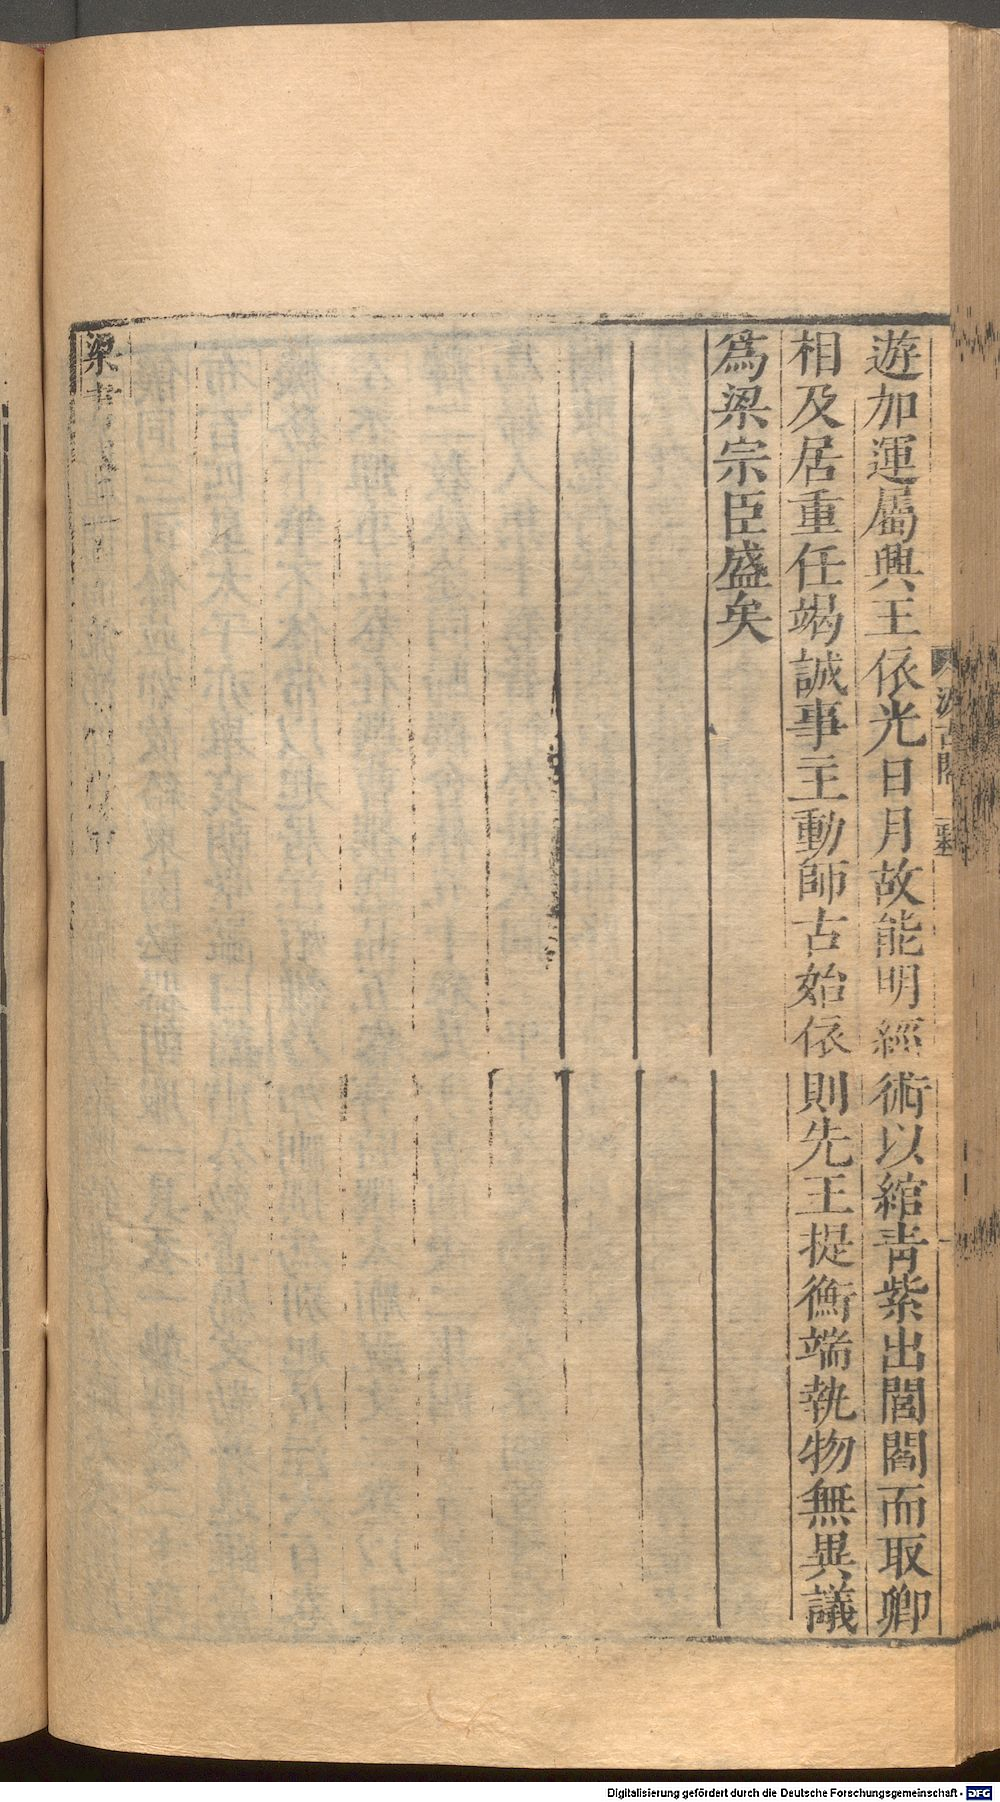 遊加運屬興王依光日月故能明經術以綰青紫出閭閻而取卿
相及居重任竭誠事主動師古始依則先王提衡端執物無異議
爲梁宗臣盛矣
梁書
汲古閣
Digitalisierung gefördert durch die Deutsche Forschungsgemeinschaft - DFG